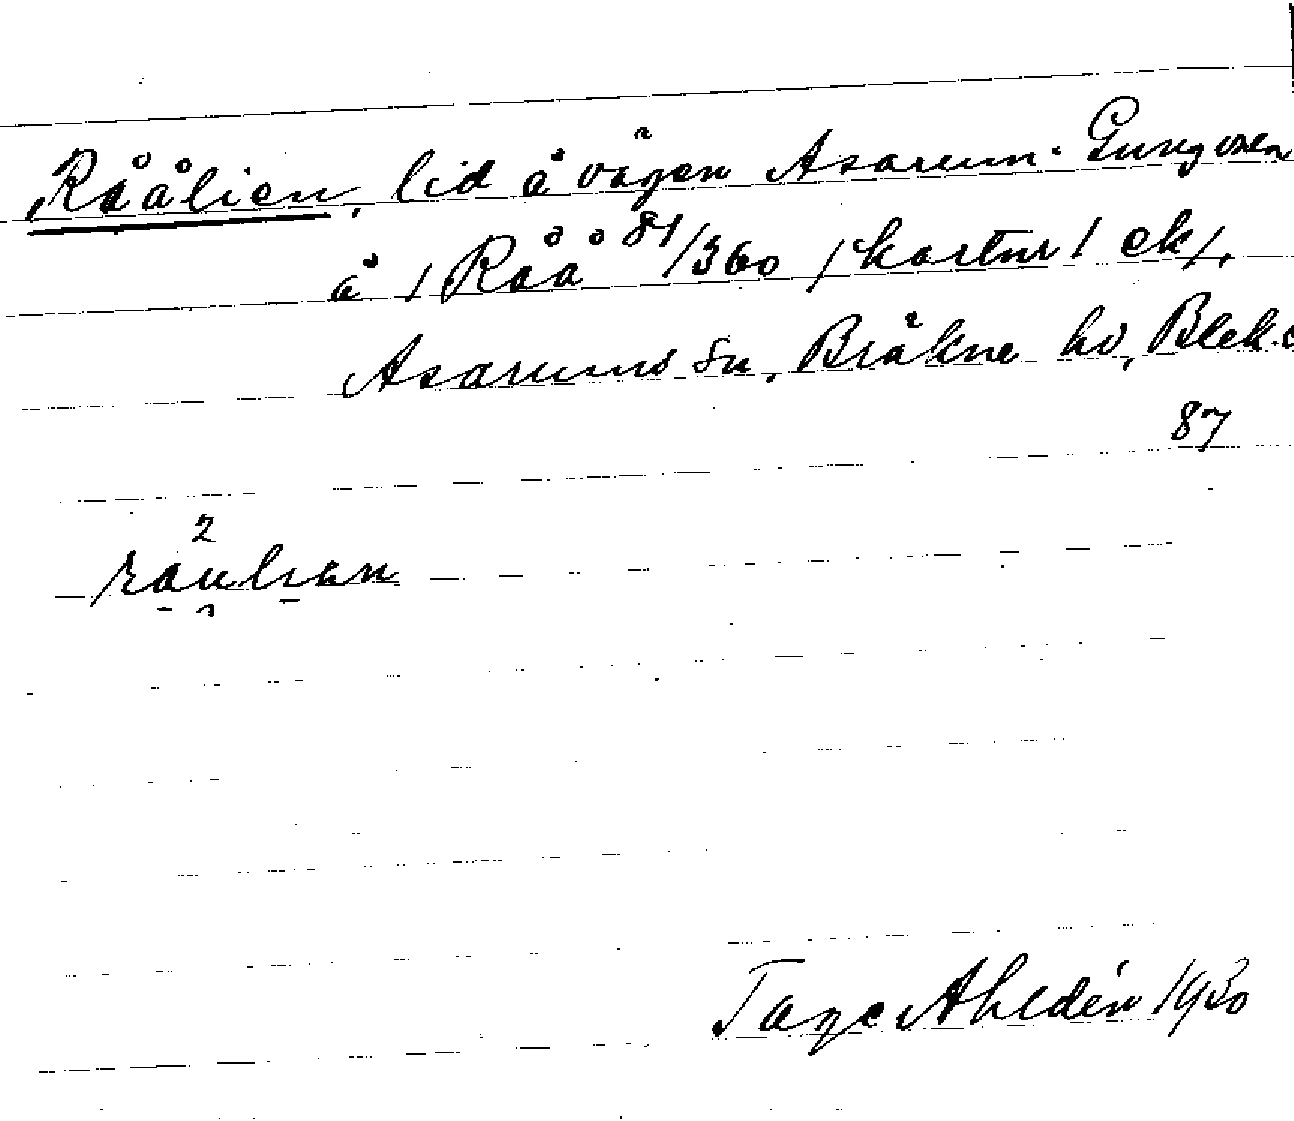 Rååliен, lid å vägen Asarum - Gungvala
å 1 Råå 81/360 /kartnr 1 ek/,
Asarums sn, Bräkne hd, Blek.
87
2
Tage Ahldén 1930